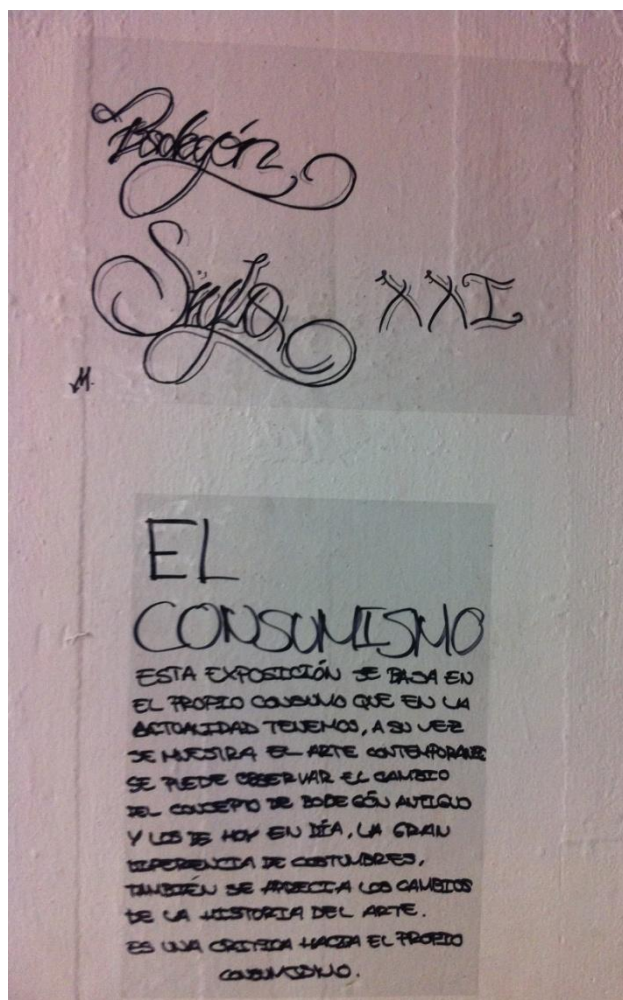 Bodegón
Siglo XXI
M.
EL
CONSUMISMO
ESTA EXPOSICIÓN SE BASA EN
EL PROPIO CONSUMO QUE EN LA
ACTUALIDAD TENEMOS, A SU VEZ
SE MUESTRA EL ARTE CONTEMPORANEO
SE PUEDE OBSERVAR EL CAMBIO
DEL CONCEPTO DE BODEGÓN ANTIGUO
Y LOS DE HOY EN DÍA, LA GRAN
DIFERENCIA DE COSTUMBRES,
TAMBIÉN SE APRECIA LOS CAMBIOS
DE LA HISTORIA DEL ARTE.
ES UNA CRITICA HACIA EL PROPIO
CONSUMISMO.